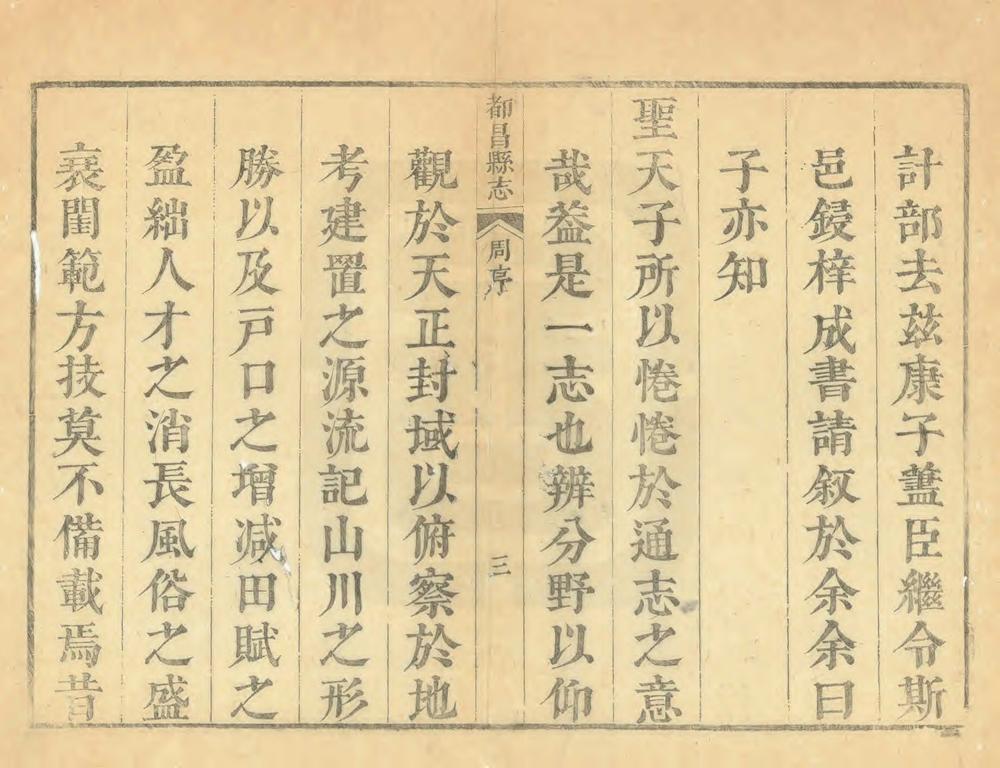 計部去兹康子藎臣繼令斯
邑鋟梓成書請叙於余余曰
子亦知
聖天子所以惓惓於通志之意
哉葢是一志也辨分野以仰
都昌縣志
周序
三
觀於天正封域以俯察於地
考建置之源流記山川之形
勝以及戸口之增减田賦之
盈絀人才之消長風俗之盛
衰閨範方技莫不備載焉昔